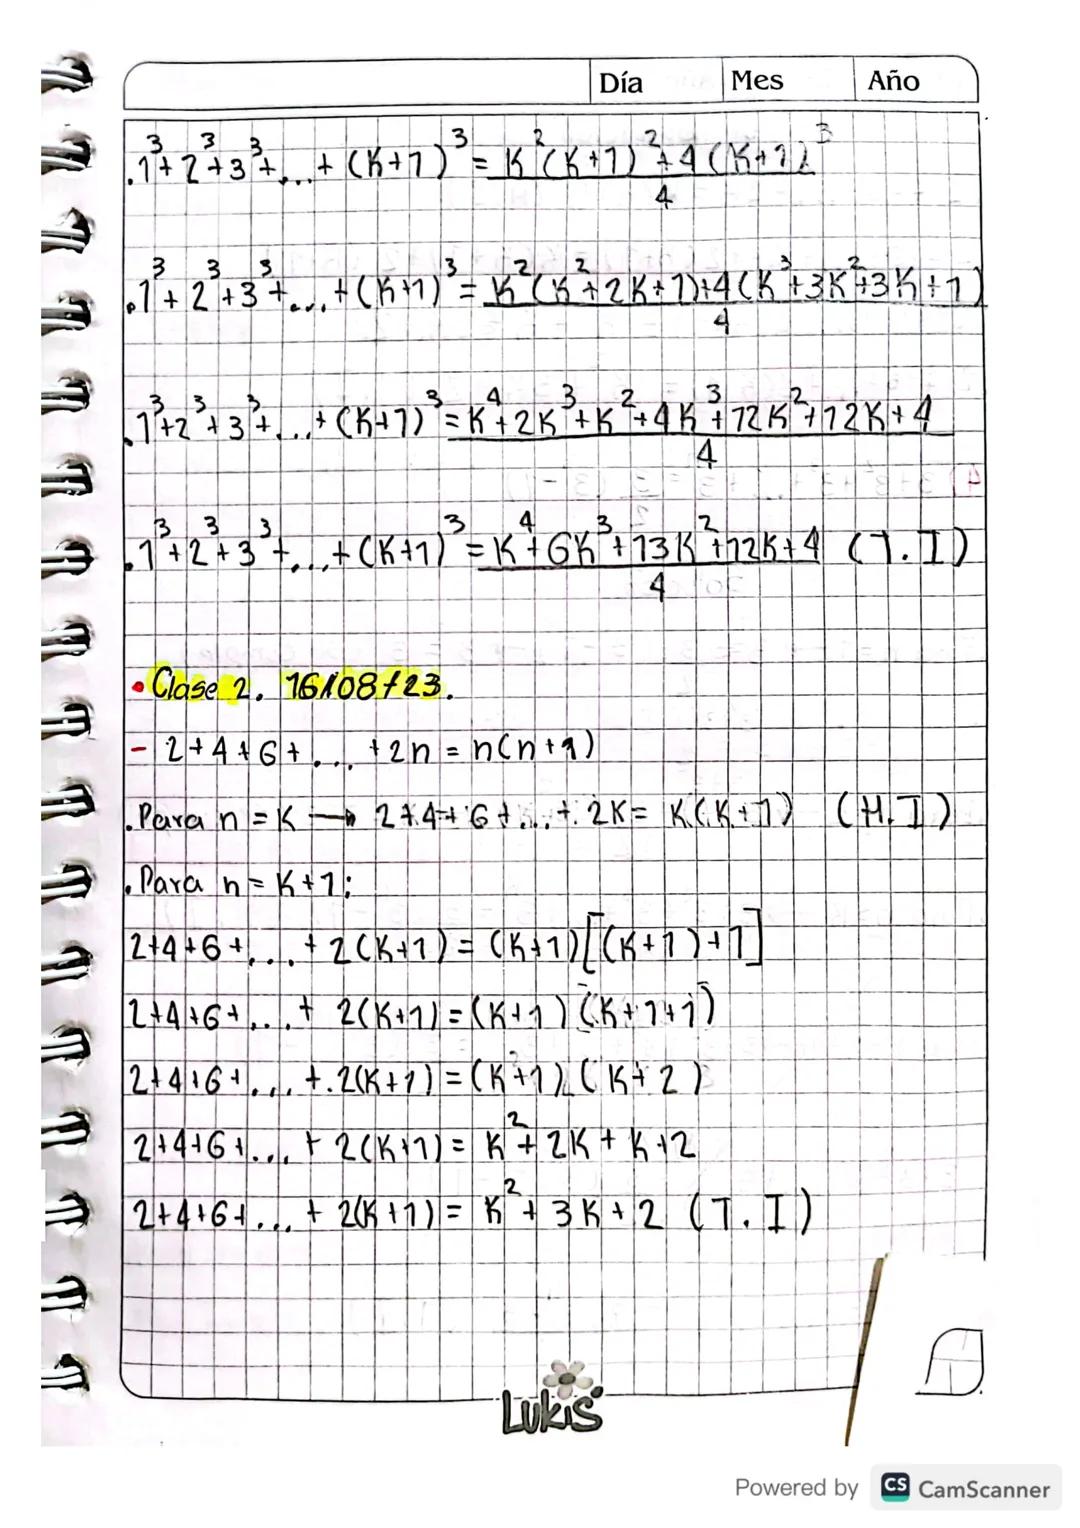 Día Mes Año
. 1³+2³+3³+...+(K+1)³ = K²(K+1)²+4(K+1)³
4
. 1³+2³+3³+...+(K+1)³ = K²(K²+2K+1)+4(K³+3K²+3K+1)
4
. 1³+2³+3³+...+(K+1)³ = K⁴+2K³+K²+4K³+12K²+12K+4
4
. 1³+2³+3³+...+(K+1)³ = K⁴+6K³+13K²+12K+4 (T.I)
4
• Clase 2. 16/08/23.
- 2+4+6+...+2n = n(n+1)
. Para n = K → 2+4+6+...+2K = K(K+1) (H.I)
. Para n = K+1;
2+4+6+...+2(K+1) = (K+1)[(K+1)+1]
2+4+6+...+2(K+1) = (K+1)(K+1+1)
2+4+6+...+2(K+1) = (K+1)(K+2)
2+4+6+...+2(K+1) = K²+2K+K+2
2+4+6+...+2(K+1) = K²+3K+2 (T.I)
Lukis
Powered by CS CamScanner